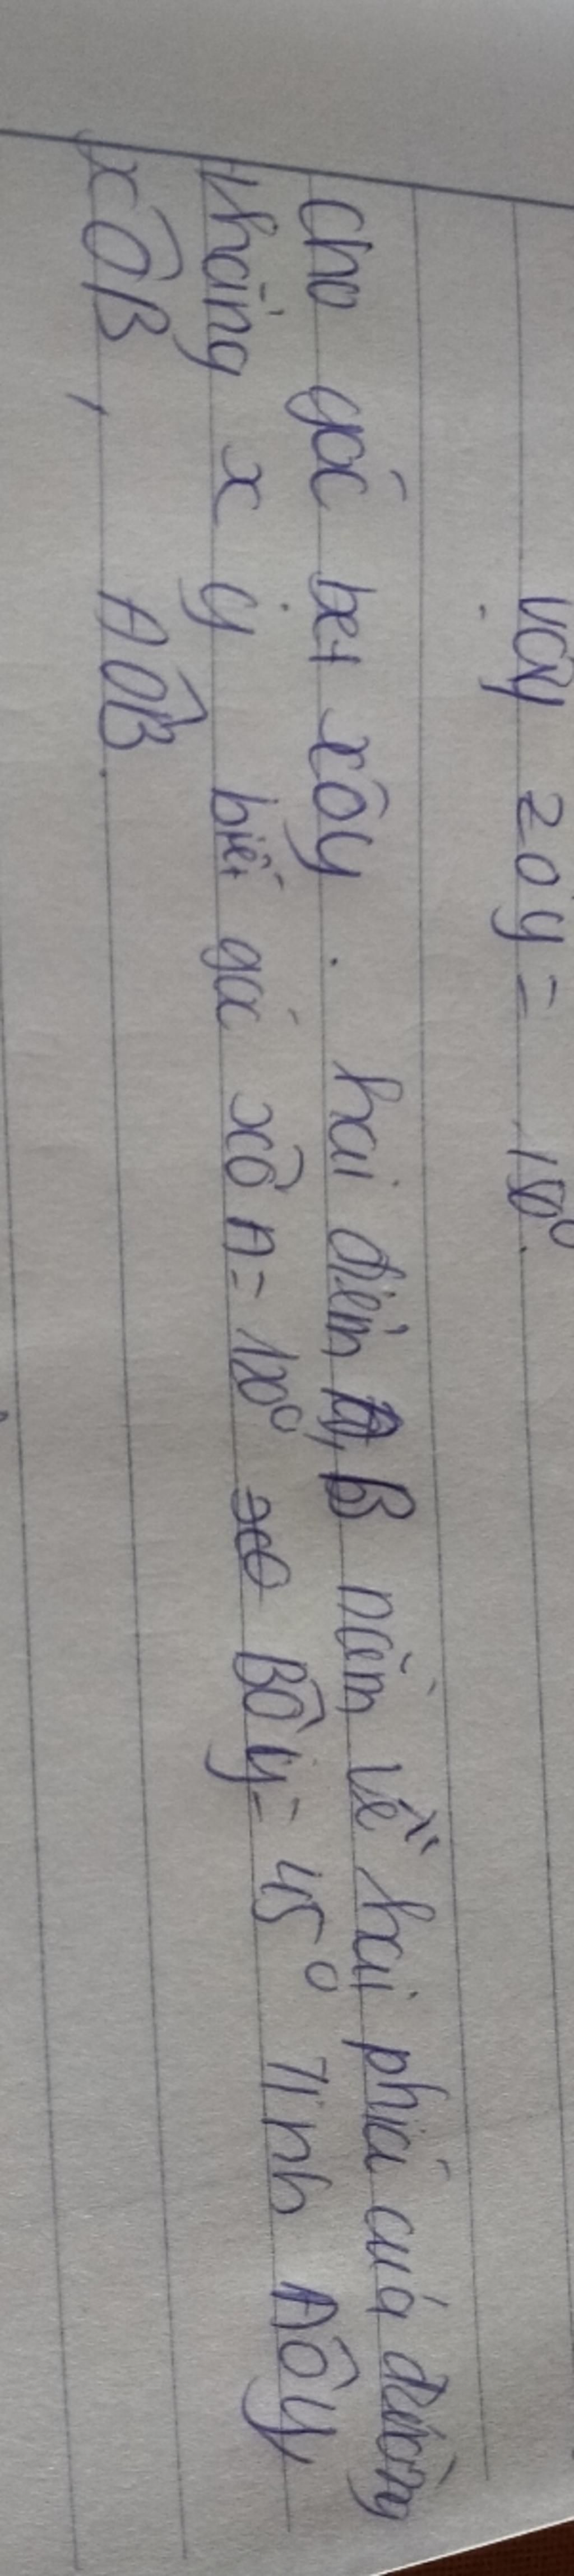 vậy zOy = 150°.
cho góc bẹt xôy. hai điểm A, B nằm về hai phía của đường
thẳng x y biết góc xÔA = 120° BÔy = 45° Tính AÔy,
xÔB, AÔB.